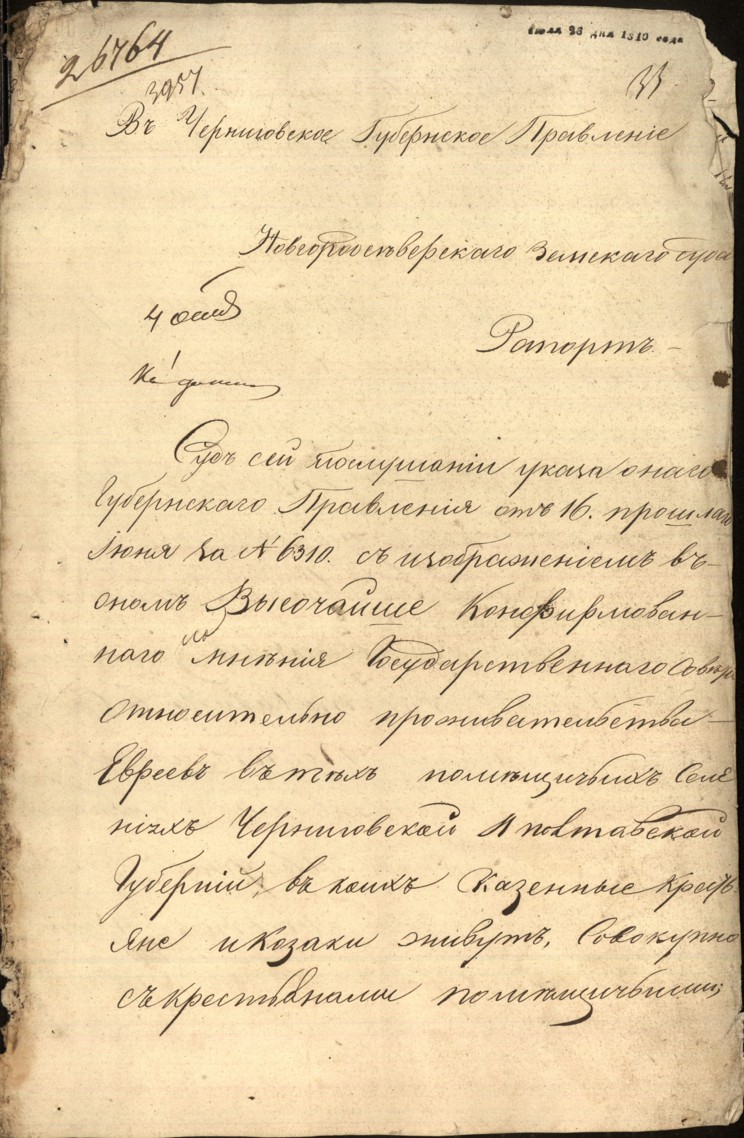 26764
3957.
Июля 28 дня 1810 года
33
Въ Черниговское Губернское Правленіе
Новгородсѣверскаго Земскаго Суда
Рапортъ
Судъ сей послушаніи указа онаго
Губернскаго Правленія отъ 16. прошлаго
Июня за № 6310. съ изображеніемъ въ
ономъ Высочайше Конфирмован-
наго мнѣнія Государственнаго Совѣта
относительно проживательства
Евреевъ въ тѣхъ помѣщичьихъ Селе
ніяхъ Черниговской и полтавской
Губерній, въ коихъ Казенные Кресть
яне и Козаки живутъ, Совокупно
съ крестьянами помѣщичьими;